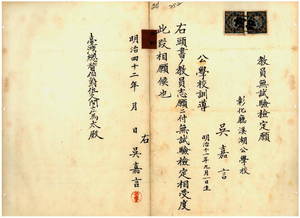 教員無試驗檢定願
彰化廳溪湖公學校
吳嘉言
明治十一年九月一日生
公學校訓導
右頭書ノ教員志願ニ付無試驗檢定相受度
此段相願候也
明治四十二年 月 日
右
吳嘉言
臺灣總督伯爵佐久間左馬太殿